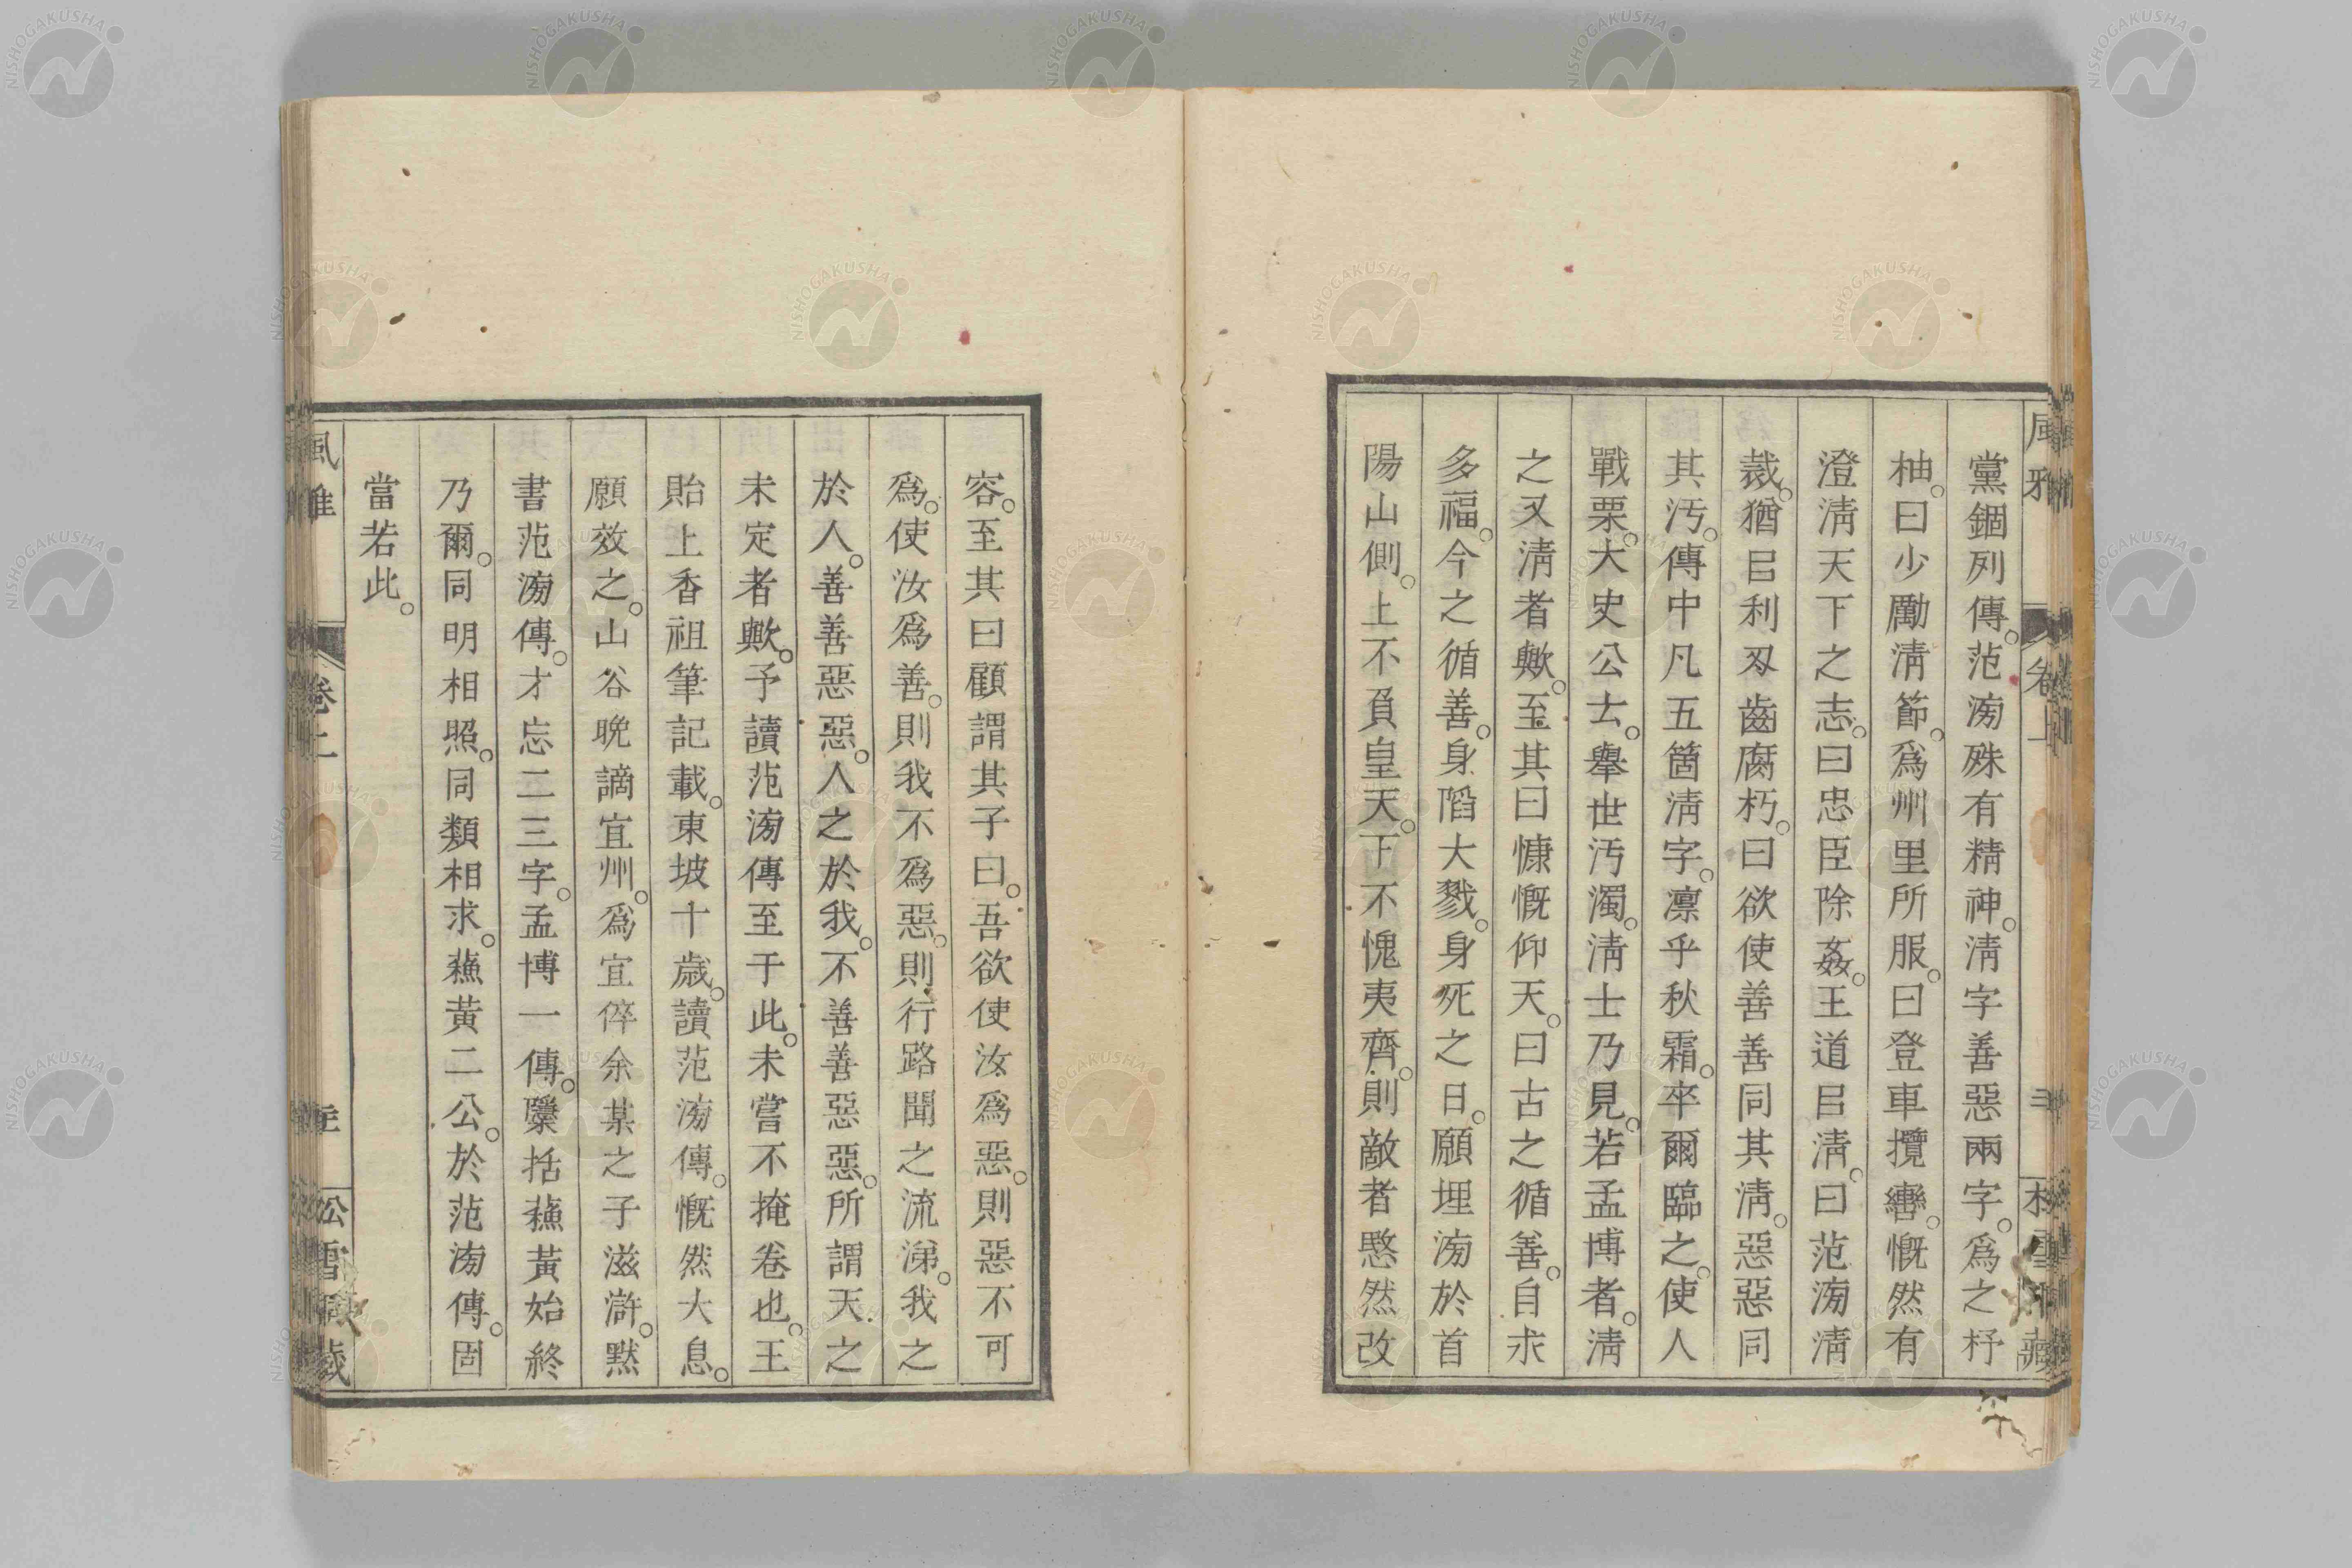 黨錮列傳。范滂殊有精神。淸字善惡兩字。爲之杼
柚。曰少勵淸節。爲州里所服。曰登車攬轡。慨然有
澄淸天下之志。曰忠臣除姦。王道㠯淸。曰范滂淸
裁。猶㠯利刄齒腐朽。曰欲使善善同其淸。惡惡同
其汚。傳中凡五箇淸字。凛乎秋霜。卒爾臨之。使人
戰栗。大史公云。擧世汚濁。淸士乃見。若孟博者。淸
之又淸者歟。至其曰慷慨仰天。曰古之循善。自求
多福。今之循善。身陷大戮。身死之日。願埋滂於首
陽山側。上不負皇天。下不愧夷齊。則敵者愍然改
容。至其曰顧謂其子曰。吾欲使汝爲惡。則惡不可
爲。使汝爲善。則我不爲惡。則行路聞之流涕。我之
於人。善善惡惡。人之於我。不善善惡惡。所謂天之
未定者歟。予讀范滂傳至于此。未嘗不掩卷也。王
貽上香祖筆記載。東坡十歲。讀范滂傳。慨然大息。
願效之。山谷晩謫宜州。爲宜倅余某之子滋滸。默
書范滂傳。才忘二三字。孟博一傳。檃括蘓黃始終
乃爾。同明相照。同類相求。蘓黃二公。於范滂傳。固
當若此。
風雅
卷上
NISHOGAKUSHA